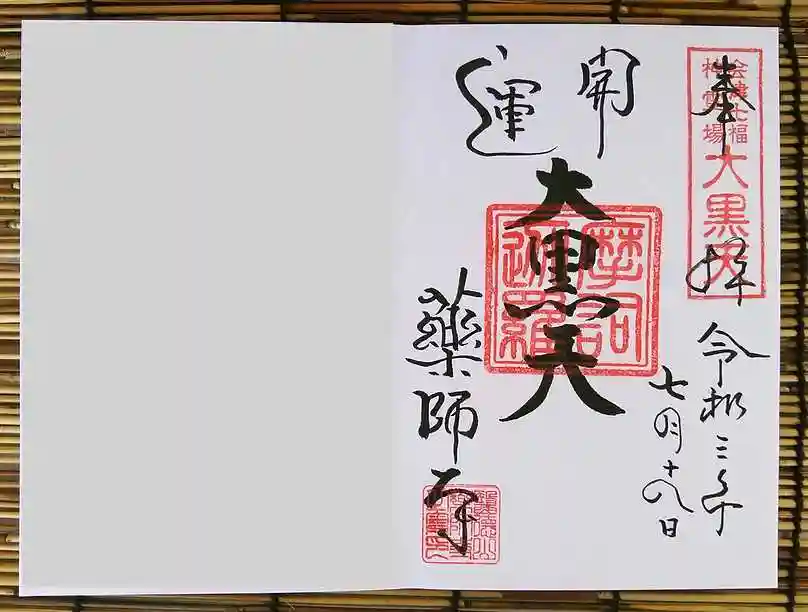 奉拝
会津七福神霊場
大黒天
令和三年
七月十八日
開運
大黒天
摩訶迦羅
薬師寺